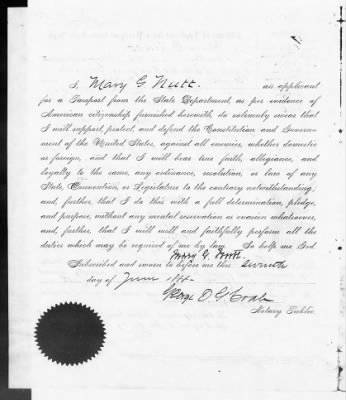 I, Mary G. Nutt. an applicant
for a Passport from the State Department, as per evidence of
American citizenship furnished herewith, do solemnly swear that
I will support, protect, and defend the Constitution and Govern-
ment of the United States, against all enemies, whether domestic
or foreign, and that I will bear true faith, allegiance, and
loyalty to the same, any ordinance, resolution, or law of any
State, Convention, or Legislature to the contrary notwithstanding;
and, further, that I do this with a full determination, pledge,
and purpose, without any mental reservation or evasion whatsoever,
and, further, that I will well and faithfully perform all the
duties which may be required of me by law. So help me God.
Mary G. Nutt.
Subscribed and sworn to before me this seventh
day of June
George
Notary Public.